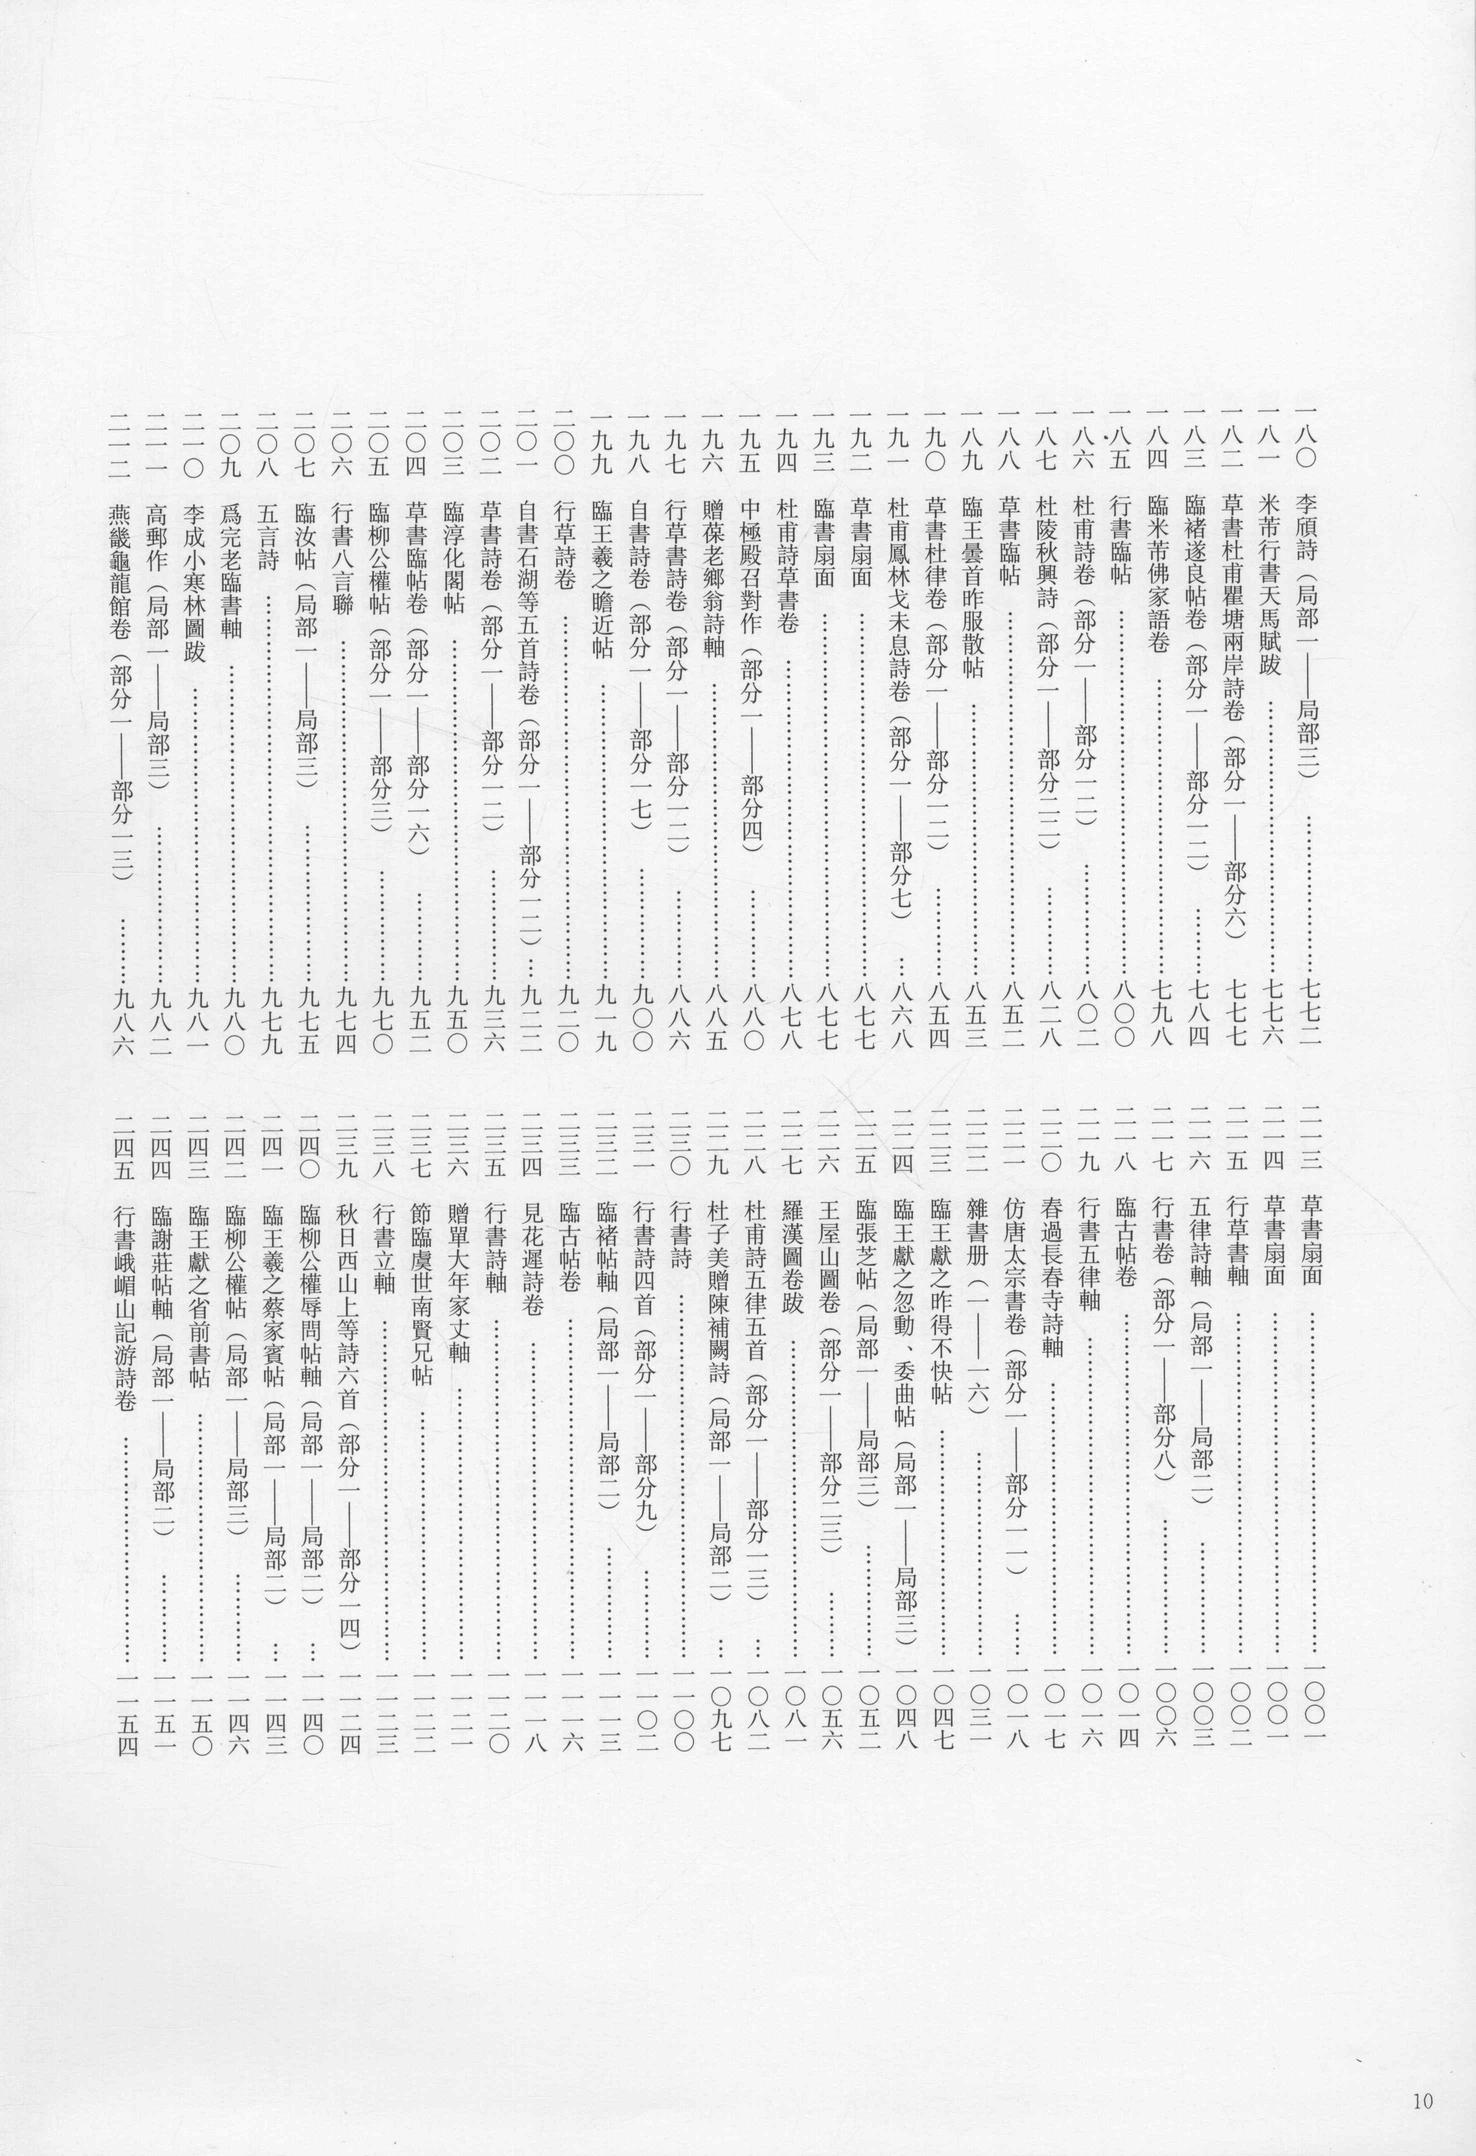 一八〇 李頎詩（局部一——局部三）……七七二
一八一 米芾行書天馬賦跋……七七六
一八二 草書杜甫瞿塘兩岸詩卷（部分一——部分六）七七七
一八三 臨褚遂良帖卷（部分一——部分一二）……七八四
一八四 臨米芾佛家語卷……七九八
一八五 行書臨帖……八〇〇
一八六 杜甫詩卷（部分一——部分一二）……八〇二
一八七 杜陵秋興詩（部分一——部分二二）……八二八
一八八 草書臨帖……八五二
一八九 臨王曇首昨服散帖……八五三
一九〇 草書杜律卷（部分一——部分一二）……八五四
一九一 杜甫鳳林戈未息詩卷（部分一——部分七）…八六八
一九二 草書扇面……八七七
一九三 臨書扇面……八七七
一九四 杜甫詩草書卷……八七八
一九五 中極殿召對作（部分一——部分四）……八八〇
一九六 贈葆老鄉翁詩軸……八八五
一九七 行草書詩卷（部分一——部分一二）……八八六
一九八 自書詩卷（部分一——部分一七）……九〇〇
一九九 臨王羲之瞻近帖……九一九
二〇〇 行草詩卷……九二〇
二〇一 自書石湖等五首詩卷（部分一——部分一二）…九二二
二〇二 草書詩卷（部分一——部分一二）……九三六
二〇三 臨淳化閣帖……九五〇
二〇四 草書臨帖卷（部分一——部分一六）……九五二
二〇五 臨柳公權帖（部分一——部分三）……九七〇
二〇六 行書八言聯……九七四
二〇七 臨汝帖（局部一——局部三）……九七五
二〇八 五言詩……九七九
二〇九 爲完老臨書軸……九八〇
二一〇 李成小寒林圖跋……九八一
二一一 高郵作（局部一——局部三）……九八二
二一二 燕畿龜龍館卷（部分一——部分一三）……九八六
二一三 草書扇面……一〇〇一
二一四 草書扇面……一〇〇一
二一五 行草書軸……一〇〇二
二一六 五律詩軸（局部一——局部二）……一〇〇三
二一七 行書卷（部分一——部分八）……一〇〇六
二一八 臨古帖卷……一〇一四
二一九 行書五律軸……一〇一六
二二〇 春過長春寺詩軸……一〇一七
二二一 仿唐太宗書卷（部分一——部分一一）……一〇一八
二二二 雜書册（一——一六）……一〇三一
二二三 臨王獻之昨得不快帖……一〇四七
二二四 臨王獻之忽動、委曲帖（局部一——局部三）一〇四八
二二五 臨張芝帖（局部一——局部三）……一〇五二
二二六 王屋山圖卷（部分一——部分二三）……一〇五六
二二七 羅漢圖卷跋……一〇八一
二二八 杜甫詩五律五首（部分一——部分一三）…一〇八二
二二九 杜子美贈陳補闕詩（局部一——局部二）…一〇九七
二三〇 行書詩……一一〇〇
二三一 行書詩四首（部分一——部分九）……一一〇二
二三二 臨褚帖軸（局部一——局部二）……一一一三
二三三 臨古帖卷……一一一六
二三四 見花遲詩卷……一一一八
二三五 行書詩軸……一一二〇
二三六 贈單大年家丈軸……一一二一
二三七 節臨虞世南賢兄帖……一一二二
二三八 行書立軸……一一二三
二三九 秋日西山上等詩六首（部分一——部分一四）一一二四
二四〇 臨柳公權辱問帖軸（局部一——局部二）…一一四〇
二四一 臨王羲之蔡家賓帖（局部一——局部二）…一一四三
二四二 臨柳公權帖（局部一——局部三）……一一四六
二四三 臨王獻之省前書帖……一一五〇
二四四 臨謝莊帖軸（局部一——局部二）……一一五一
二四五 行書峨嵋山記游詩卷……一一五四
10